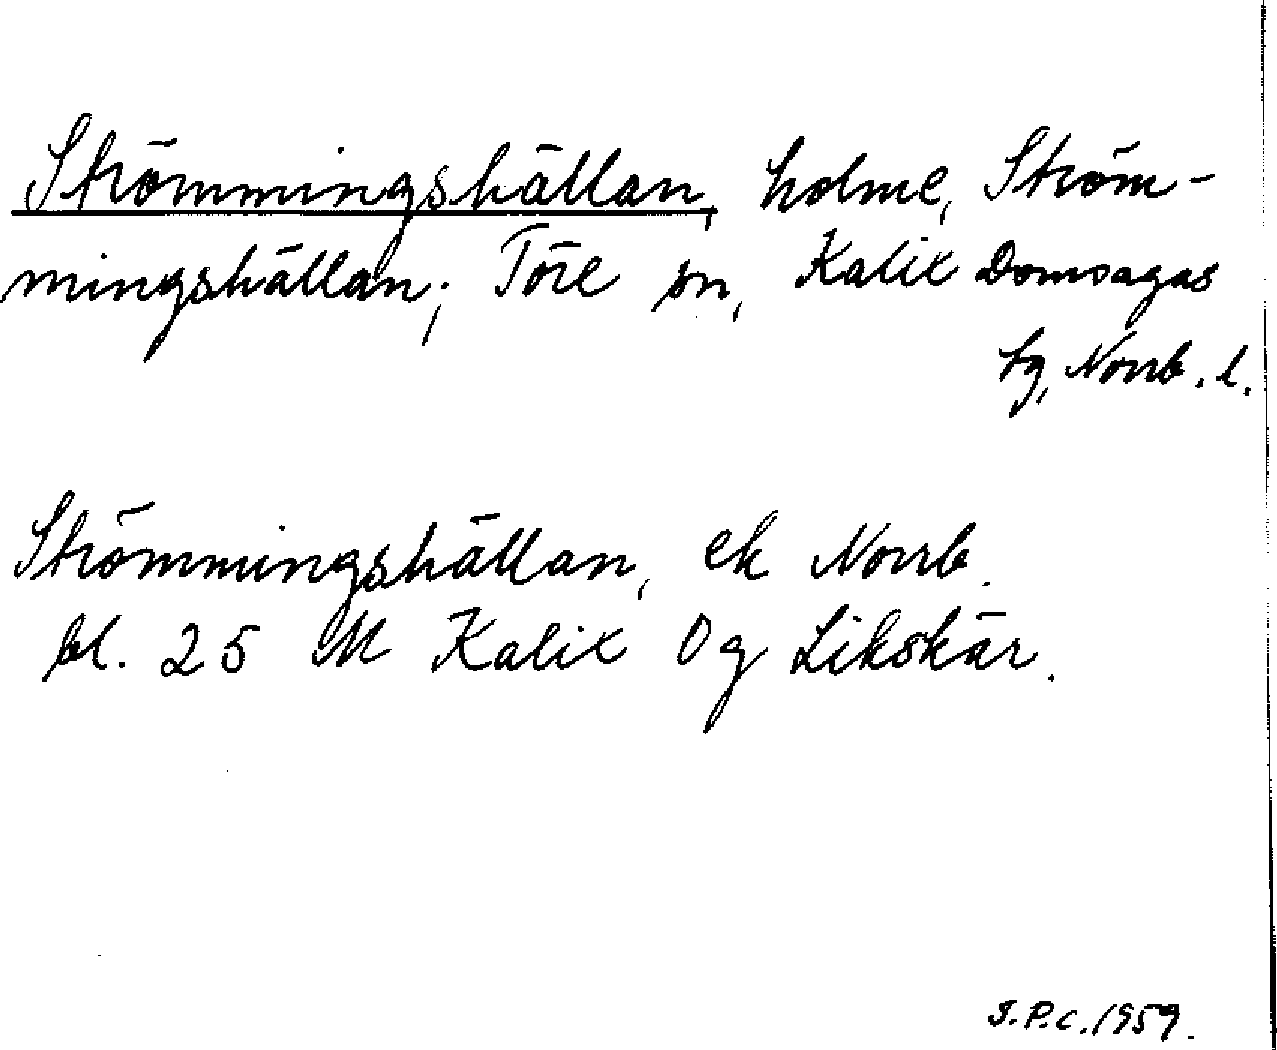 Strömmingshällan, holme, Ström-
mingshällan; Töre sn, Kalix Domsagas
tg, Norrb. l.
Strömmingshällan, ek Norrb.
bl. 25 M Kalix Og Likskär.
J.P.C. 1959.